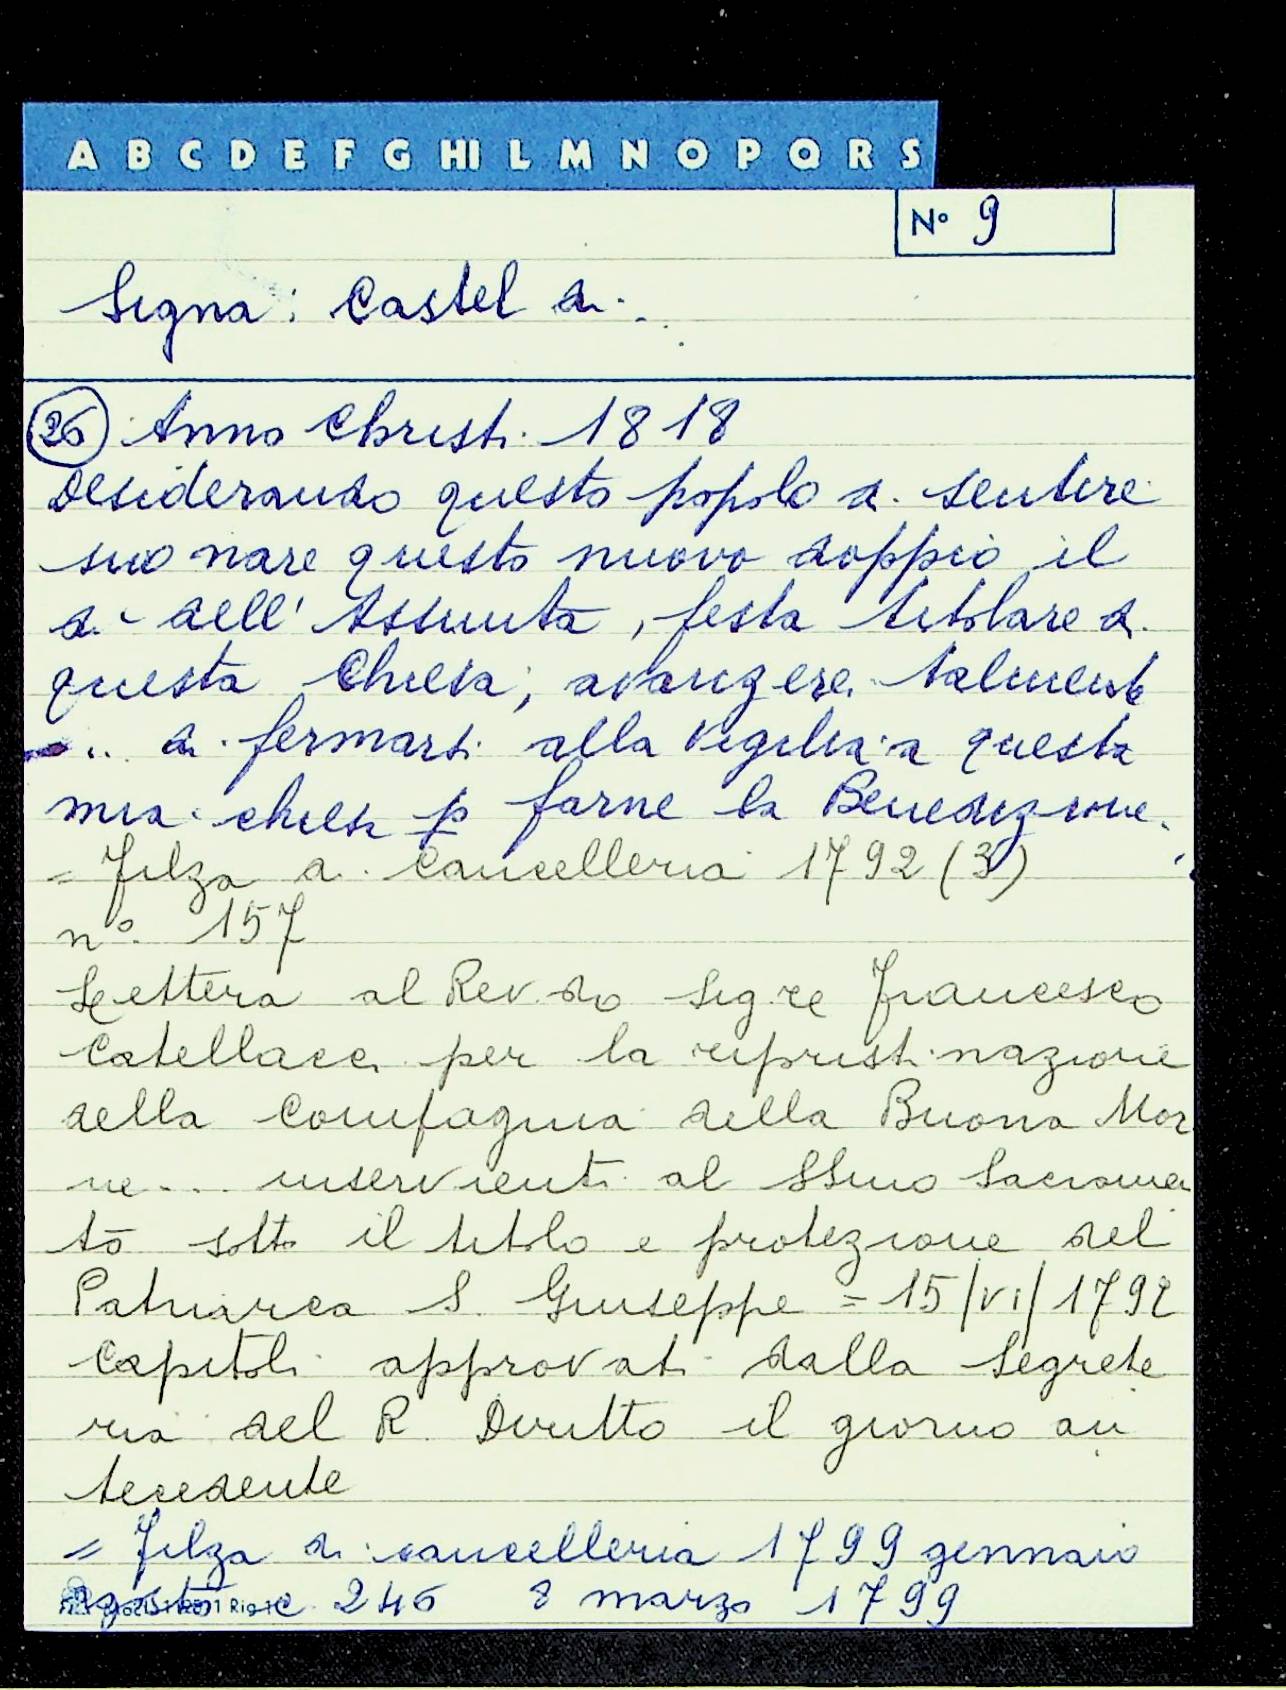 A B C D E F G HI L M N O P Q R S
N° 9
Signa: Castel di.
26 Anno Christi 1818
Desiderando questo popolo di sentire
suonare questo nuovo doppio il
dì dell'Assunta, festa titolare di
questa Chiesa; avanzere talmente
... di fermarsi alla vigilia a questa
mia chiesa p farne la Benedizione.
= Filza di Cancelleria 1792 (3)
n°. 157
Lettera al Rev.do Sig.re Francesco
Catellacci per la ripristinazione
della Compagnia della Buona Mor
ne... inservienti al SSmo Sacramen
to sotto il titolo e protezione del
Patriarca S. Giuseppe = 15/VI/1792
Capitoli approvati dalla Segrete
ria del R. Diritto il giorno an
tecedente
= Filza di cancelleria 1799 gennaio
agosto c 246 8 marzo 1799